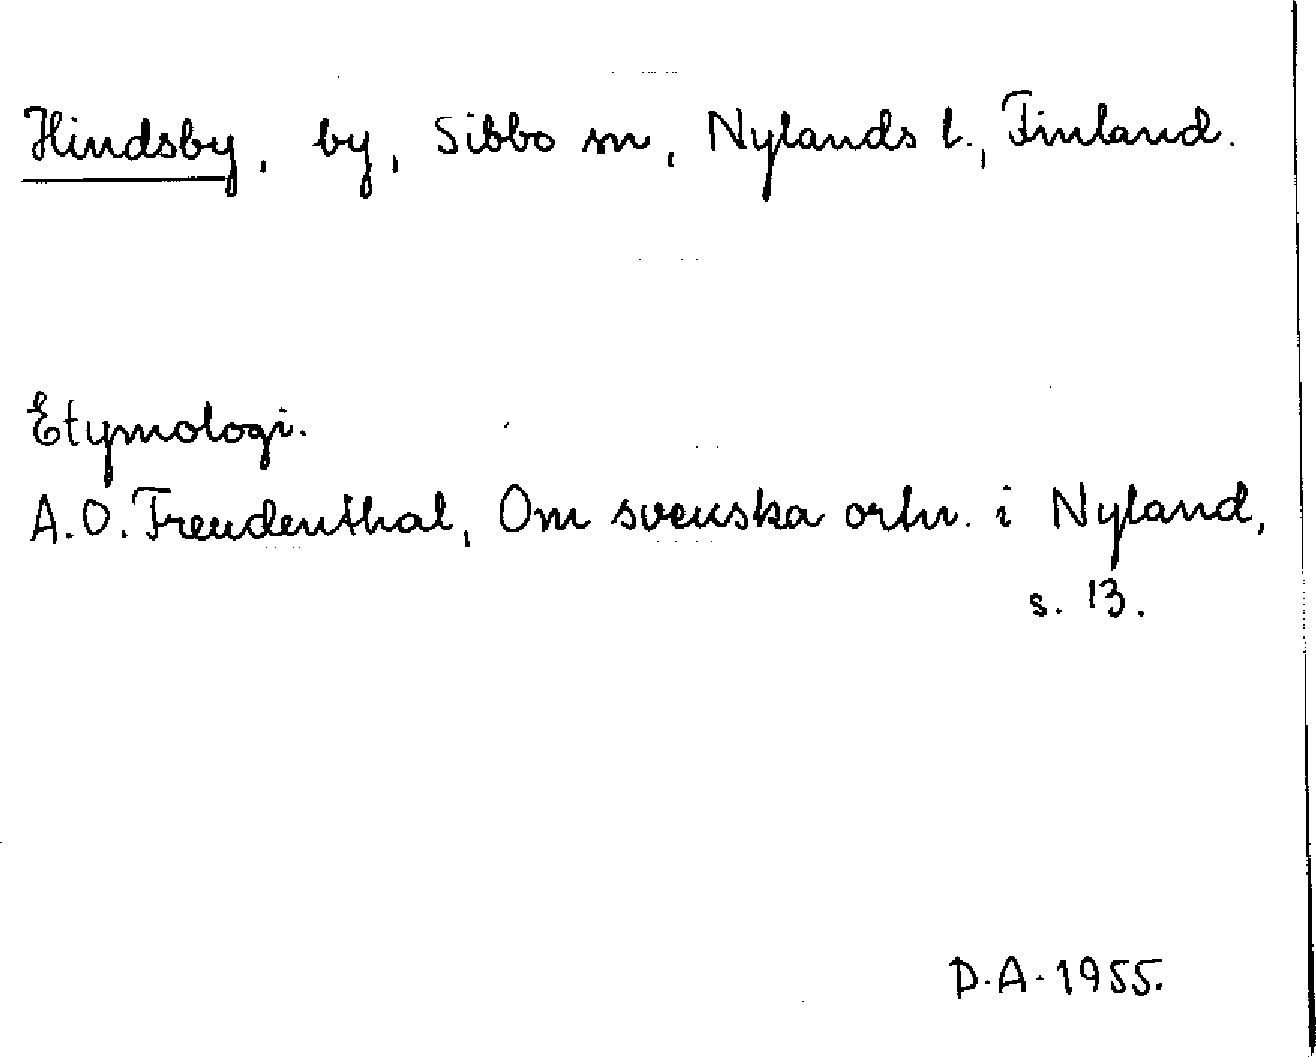 Hindsby, by, Sibbo sn, Nylands l., Finland.
Etymologi.
A.O. Freudenthal, Om svenska ortn. i Nyland,
s. 13.
D.A. 1955.